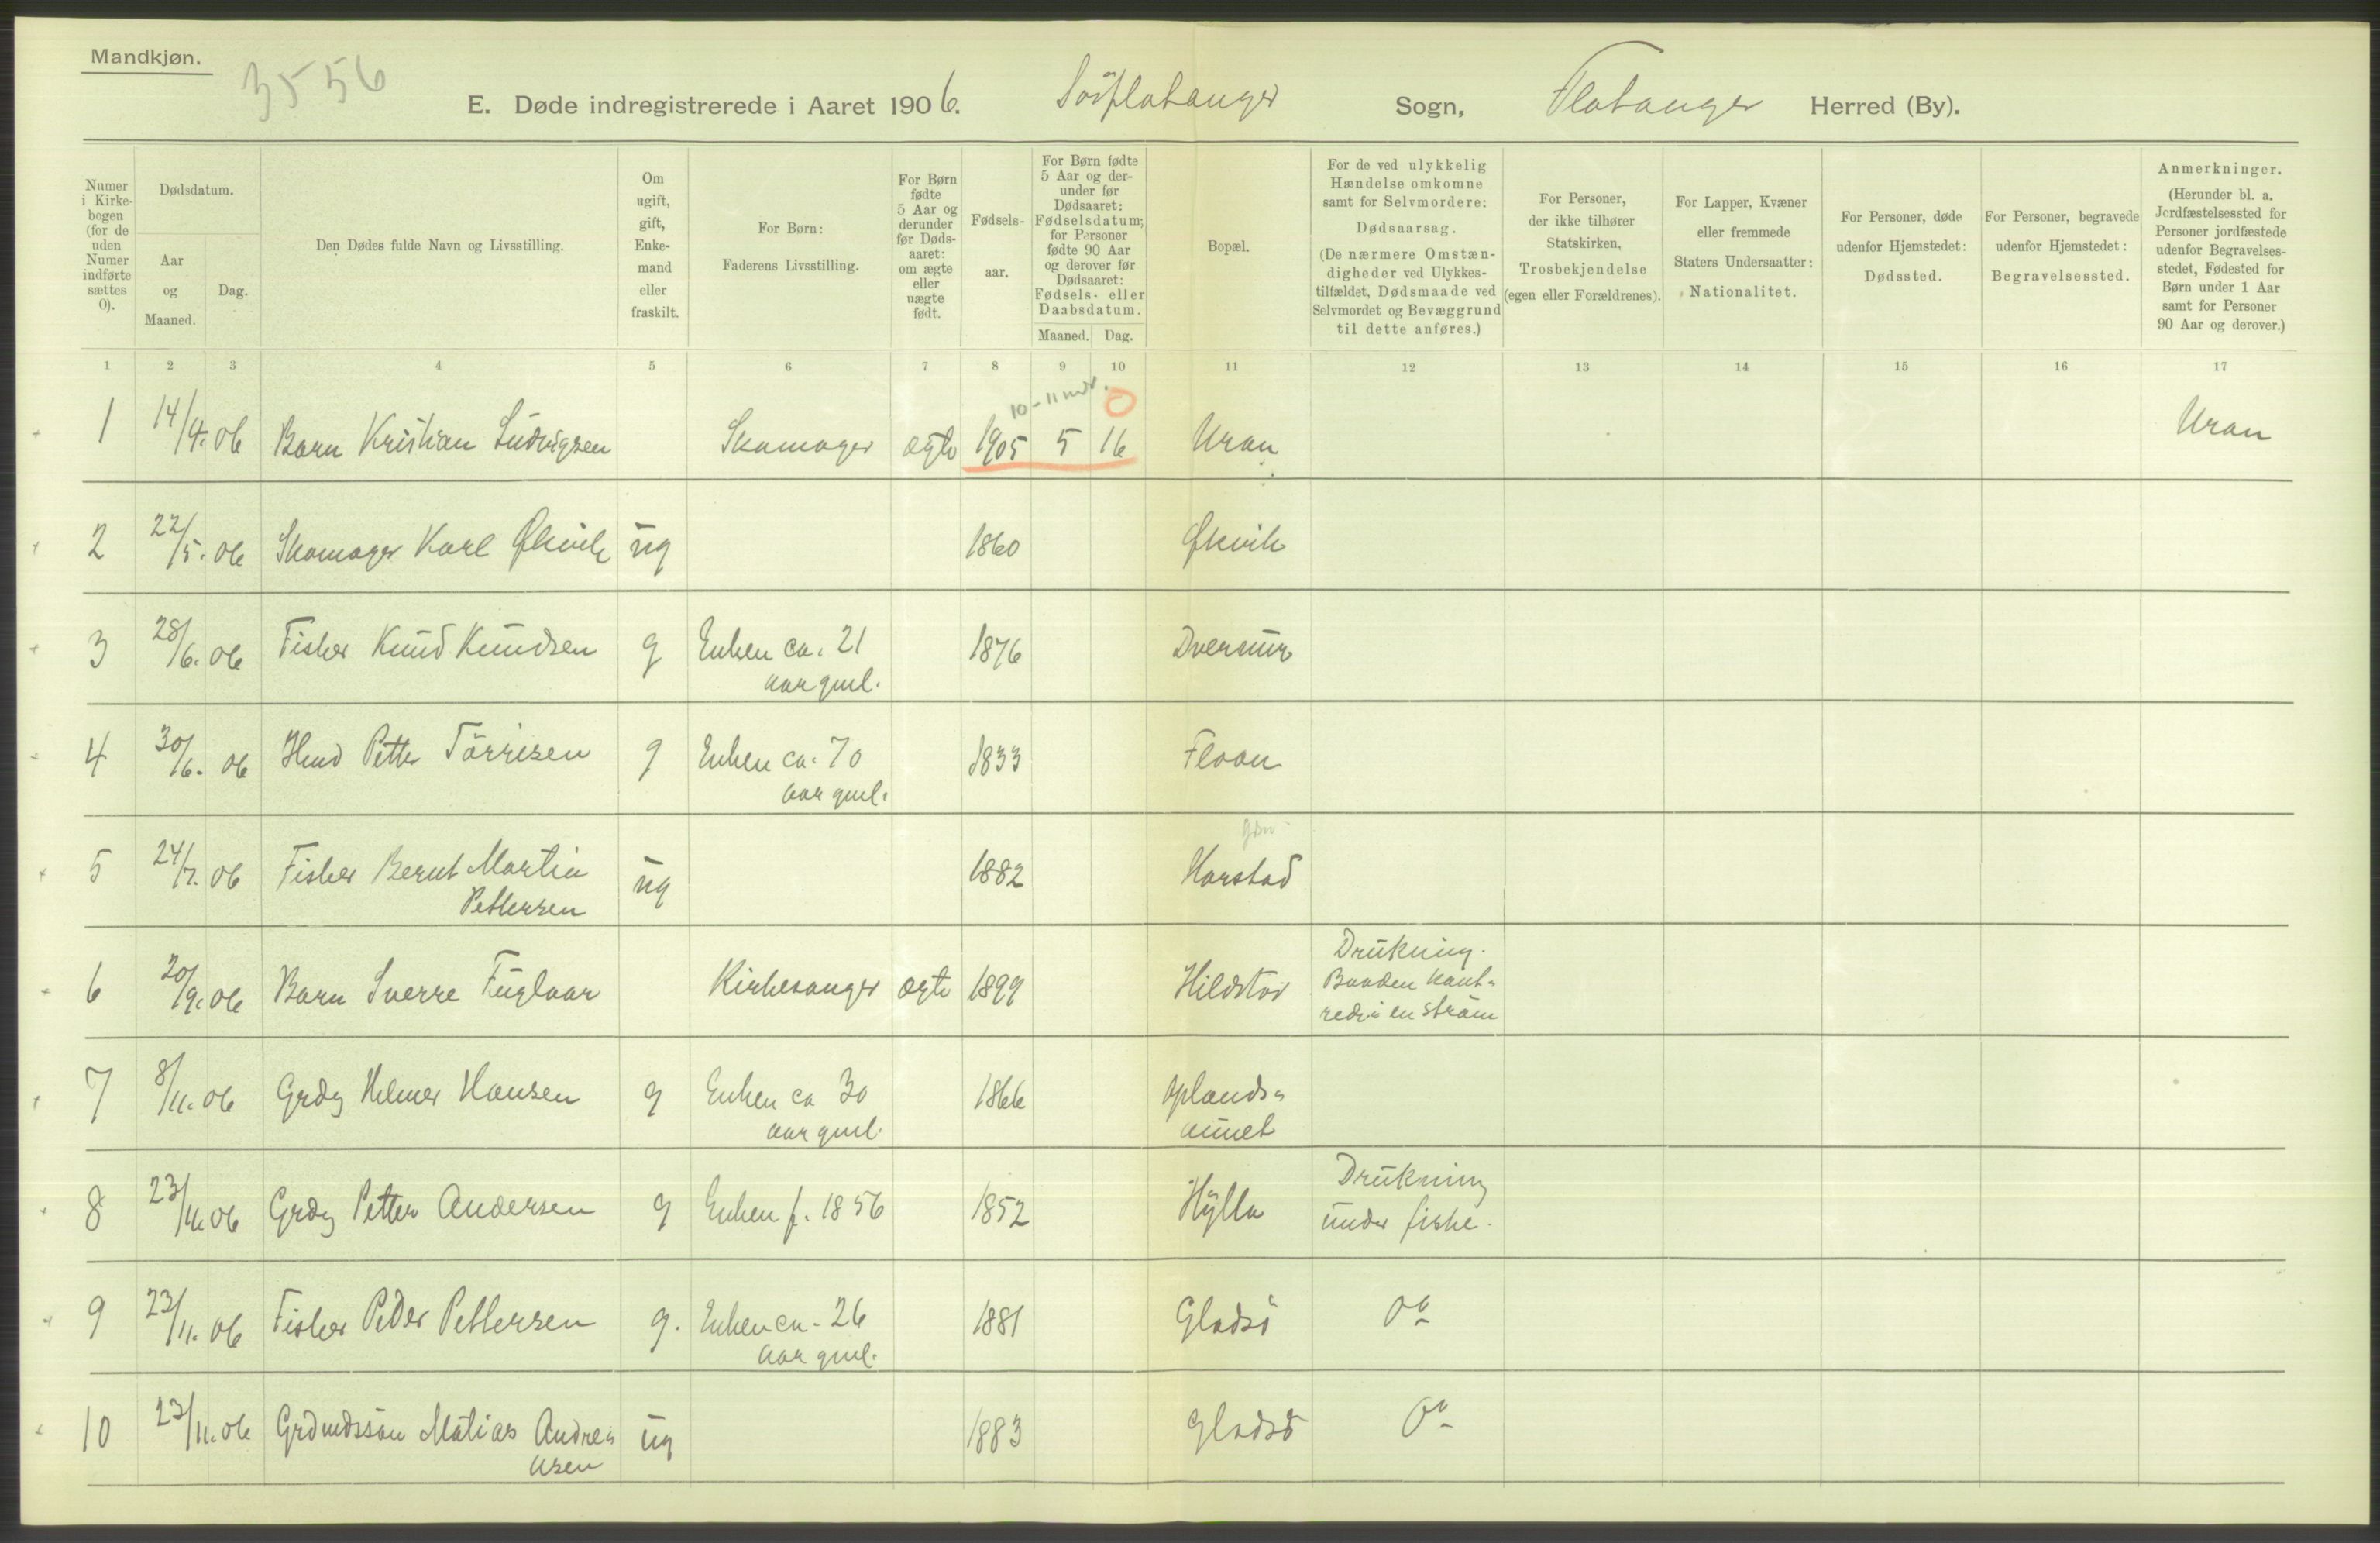 Mandkjøn.
3556
E. Døde indregistrerede i Aaret 1906. Sörflatanger Sogn, Flatanger Herred (By).
Numer i Kirkebogen (for de uden Numer indførte sættes 0).
Dødsdatum.
Aar og Maaned.
Dag.
Den Dødes fulde Navn og Livsstilling.
Om ugift, gift, Enkemand eller fraskilt.
For Børn:
Faderens Livsstilling.
For Børn fødte 5 Aar og derunder før Dødsaaret: om ægte eller uægte født.
Fødselsaar.
For Børn fødte 5 Aar og derunder før Dødsaaret: Fødselsdatum; for Personer fødte 90 Aar og derover før Dødsaaret: Fødsels- eller Daabsdatum.
Maaned. Dag.
Bopæl.
For de ved ulykkelig Hændelse omkomne samt for Selvmordere:
Dødsaarsag.
(De nærmere Omstændigheder ved Ulykkestilfældet, Dødsmaade ved Selvmordet og Bevæggrund til dette anføres.)
For Personer, der ikke tilhører Statskirken,
Trosbekjendelse
(egen eller Forældrenes).
For Lapper, Kvæner eller fremmede Staters Undersaatter:
Nationalitet.
For Personer, døde udenfor Hjemstedet:
Dødssted.
For Personer, begravede udenfor Hjemstedet:
Begravelsessted.
Anmerkninger.
(Herunder bl. a. Jordfæstelsessted for Personer jordfæstede udenfor Begravelsesstedet, Fødested for Børn under 1 Aar samt for Personer 90 Aar og derover.)
1 2 3 4 5 6 7 8 9 10 11 12 13 14 15 16 17
10-11 md. 0
1 14/4. 06 Barn Kristian Ludvigsen Skomager ægte 1905 5 16 Uran Uran
2 22/5. 06 Skomager Karl Økvik ug 1860 Økvik
3 28/6. 06 Fisker Knud Knudsen g Enken ca. 21 1876
aar gml.
4 30/6. 06 Petter Törrisen g Enken ca. 70 1833 Floan
aar gml.
5 24/7. 06 Fisker Bernt Martin ug 1882 Harstad
Pettersen
6 20/9. 06 Barn Sverre Fuglaar Kirkesanger ægte 1899 Hildstad Drukning.
Baaden kant-
redi i en ström
7 8/11. 06 Grdg Helmer Hansen g Enken ca 30 1866 Oplands-
aar gml. aunet
8 23/11. 06 Grdg Petter Andersen g Enken f. 1856 1852 Hylla Drukning
under fiske.
9 23/11. 06 Fisker Peder Pettersen g. Enken ca. 26 1881 Gladsö Do
aar gml.
10 23/11. 06 Grdmdssön Matias Andre- ug 1883 Gladsö Do
asen